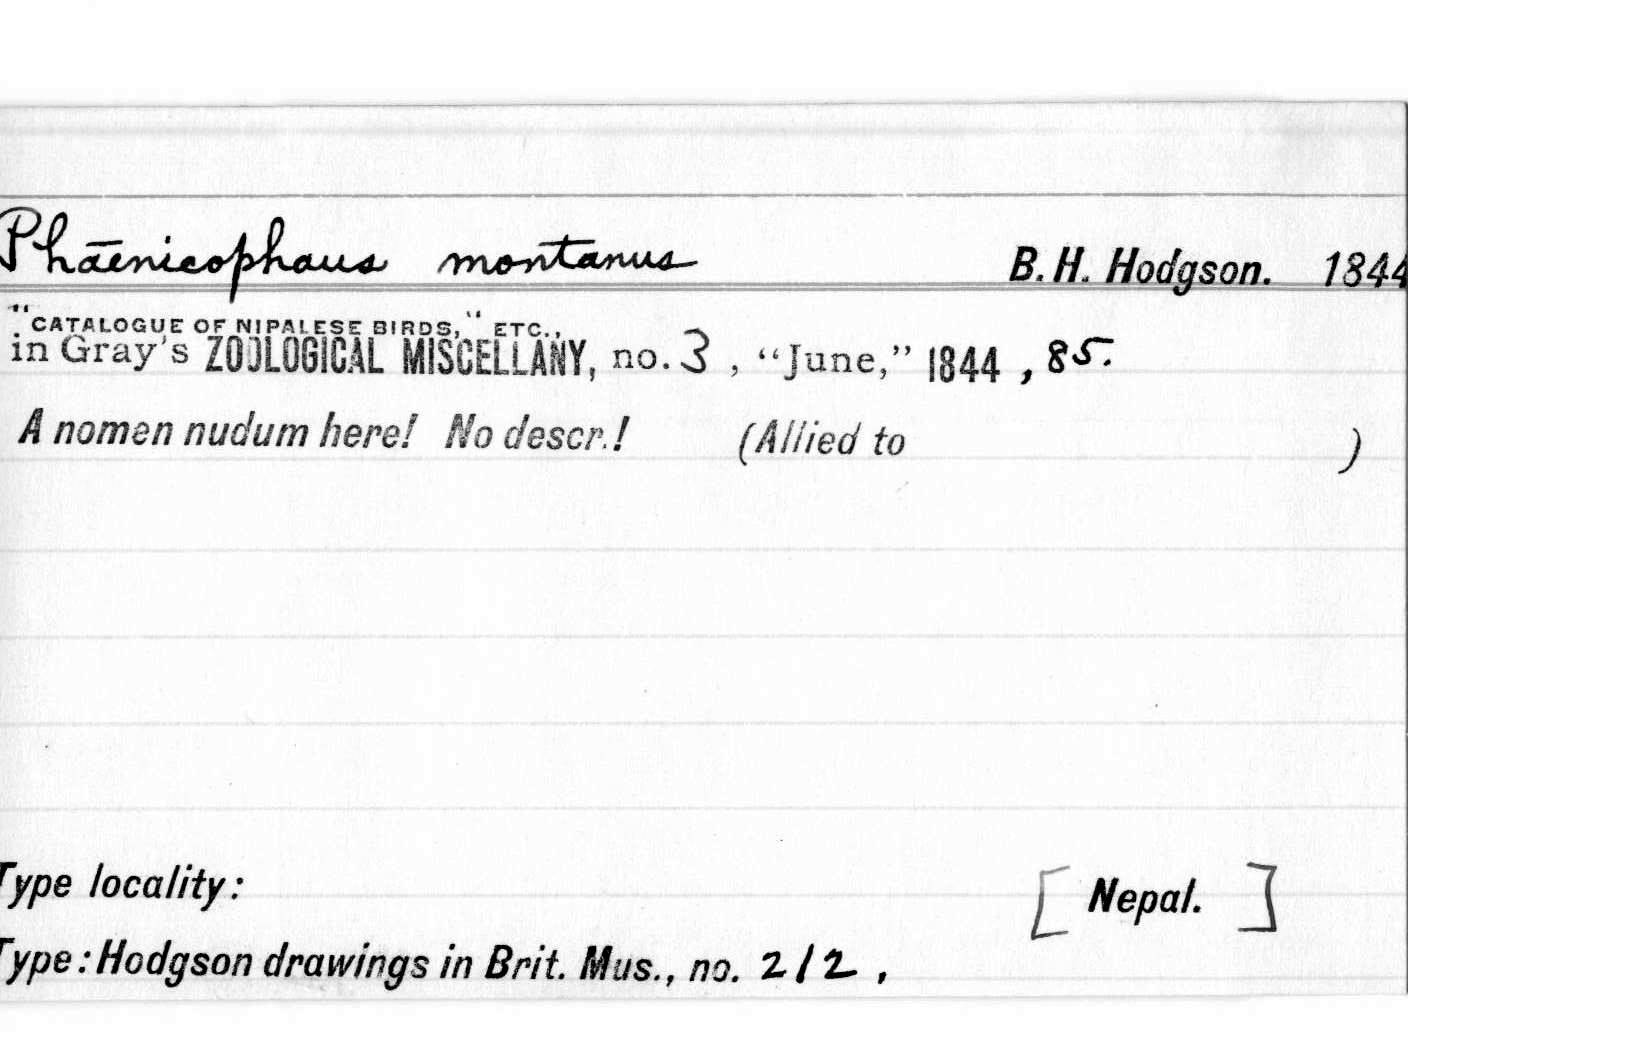 Phaenicophaus montanus B. H. Hodgson. 1844
"CATALOGUE OF NIPALESE BIRDS," ETC.,
in Gray's ZOOLOGICAL MISCELLANY, no. 3 , "June," 1844 , 85.
A nomen nudum here! No descr.! (Allied to )
Type locality: [ Nepal. ]
Type: Hodgson drawings in Brit. Mus., no. 212 ,